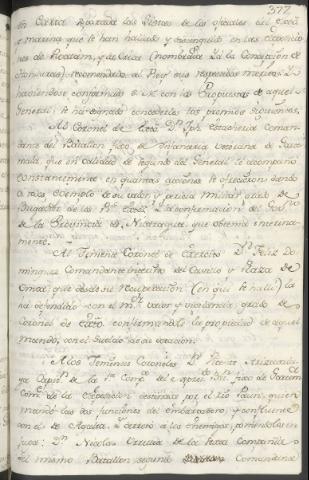 372
en Carta apartada las acciones de los oficiales del Exto
o marina que se han hallado y distinguido en las
nes de Roatan, y la Criba (nombrada de la Concepcion de
Honduras) recomendando al Rey sus respectivos meritos. Y
haviendose conformado S. M. con las Propuestas de aquel
General, se ha dignado concederles los premios siguientes.
Al Coronel de Exto Dn Josh Estacheria Coman
dante del Batallon fixo de Infanteria veterana de Guate
mala, que en calidad de segundo del General le acompaño
constantemente en quantas acciones se ofrecieron dando
a todos exemplo de su valor y pericia militar, grado de
Brigadier de los Rs Extos, y la confirmacion del Govno
de la Provincia de Nicaragua, que obtenia interina
mente.
Al Teniente Coronel de Exercito Dn Feliz Do
minguez Comandante interino del Castillo y Plaza de
Omoa, que desde su recuperacion (en que se halló) la
ha defendido con el mor valor y vigilancia, grado de
Coronel de Exto confirmandole la propiedad de aquel
mando, con el sueldo de su dotacion.
A los Tenientes Coroneles Dn
ga Capn de la Compa del expresdo Bon fixo de
Comte de la Expedicion destinada por el Rio Paun, quien
mandó las dos funciones del embarcadero, y confluente
con el de Agalta, y derrotó a los enemigos, poniendolos en
fuga: Dn Nicolas Urrutia de la Compañia
del mismo Batallon, segundo Comandante